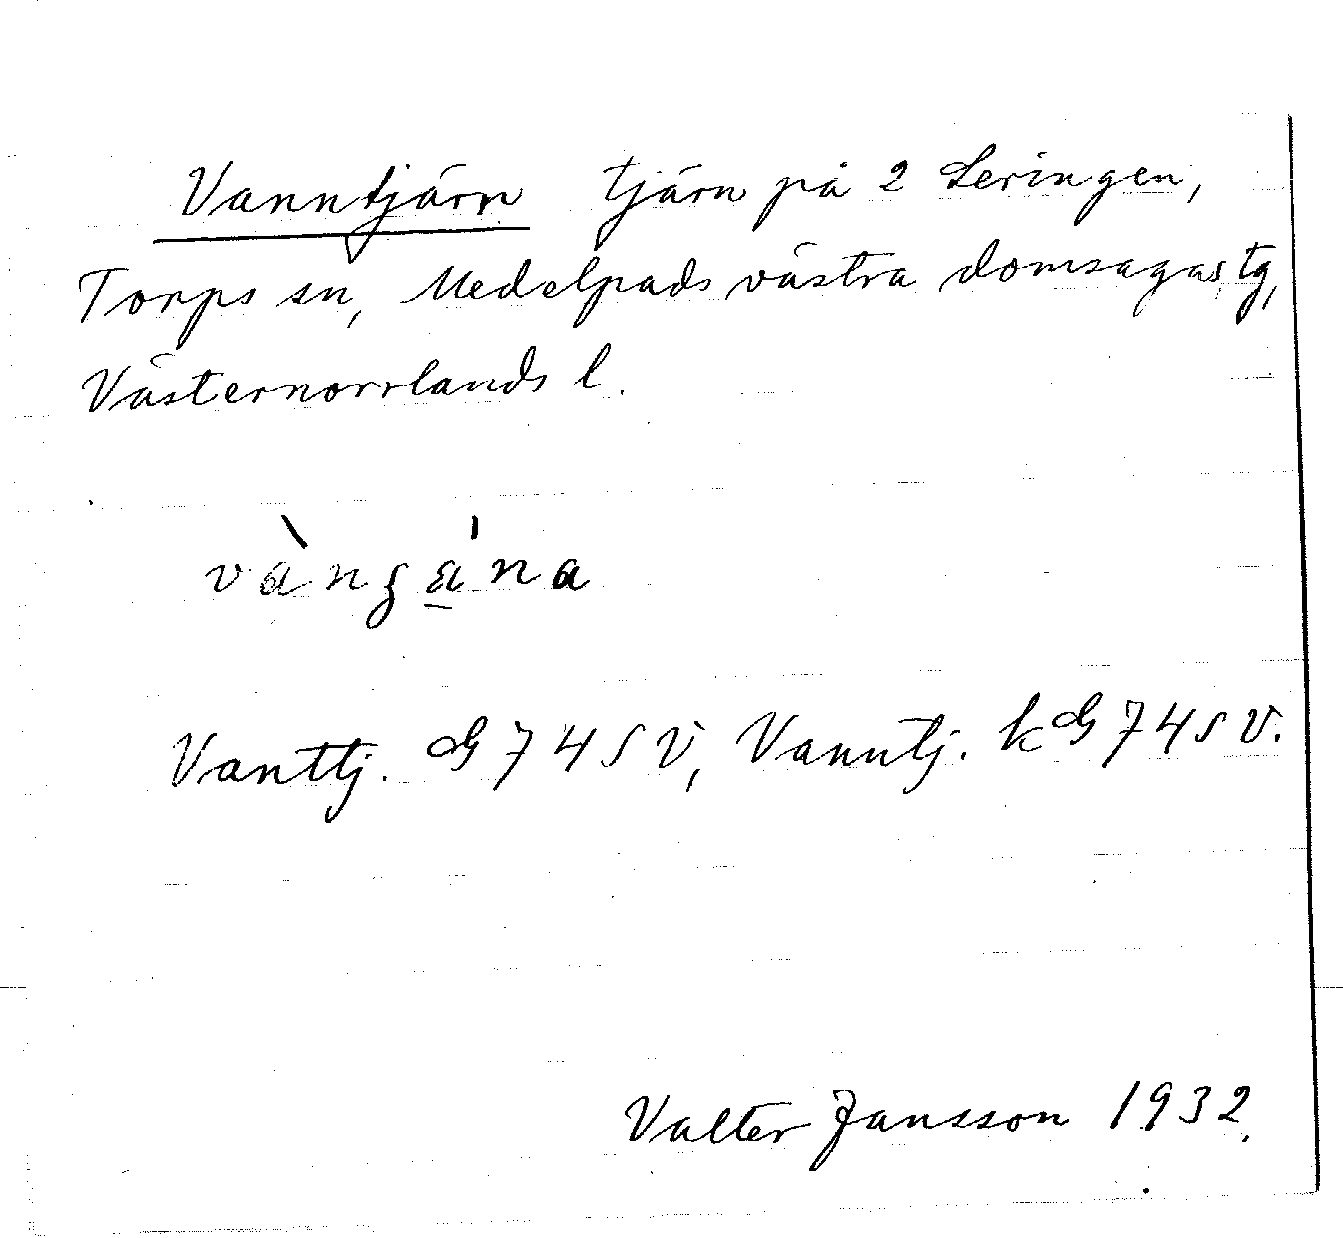 Vanntjärn tjärn på 2 Leringen,
Torps sn, Medelpads västra domsagas tg,
Västernorrlands l.
Vanttj. G 74 SV, Vanntj. kG 74 SV.
Valter Jansson 1932.